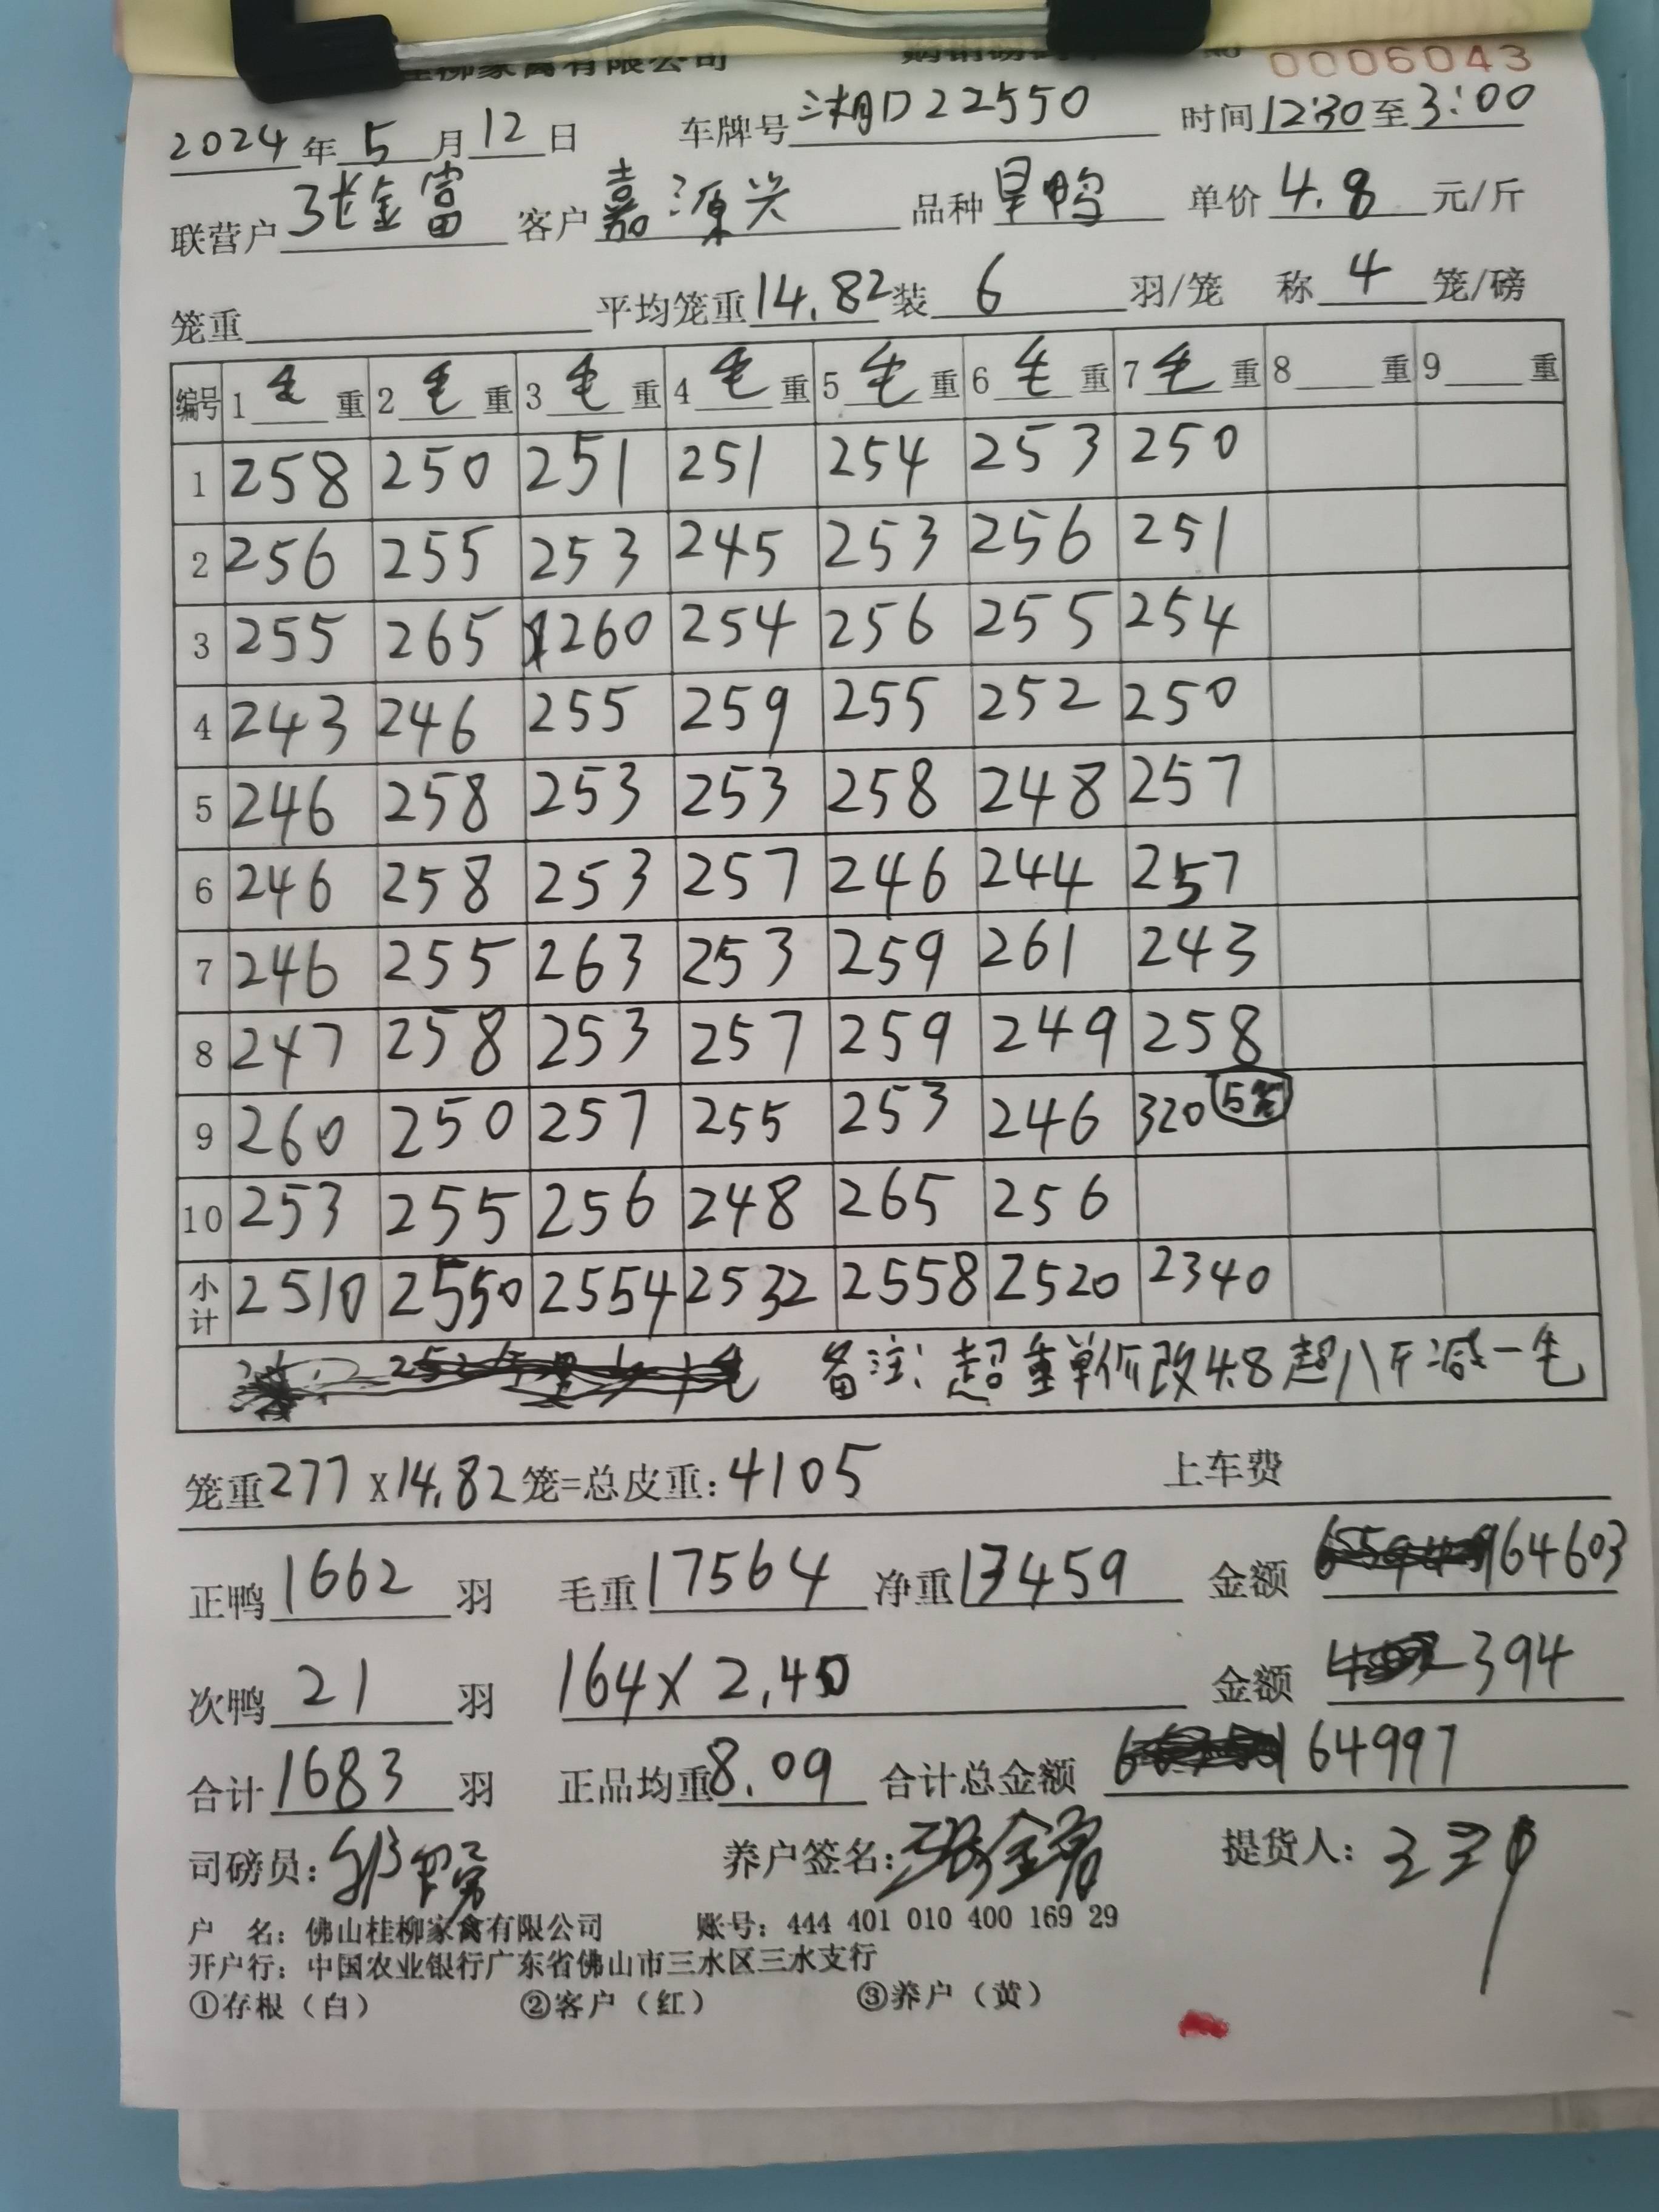 桂柳家禽有限公司 0006043
2024年5月12日 车牌号 湘D22550 时间12:30至3:00
联营户 张金富 客户 嘉源兴 品种 旱鸭 单价 4.8 元/斤
笼重 平均笼重14.82装 6 羽/笼 称 4 笼/磅
编号 1 毛 重 2 毛 重 3 毛 重 4 毛 重 5 毛 重 6 毛 重 7 毛 重 8 重 9 重
1 258 250 251 251 254 253 250
2 256 255 253 245 253 256 251
3 255 265 260 254 256 255 254
4 243 246 255 259 255 252 250
5 246 258 253 253 258 248 257
6 246 258 253 257 246 244 257
7 246 255 263 253 259 261 243
8 247 258 253 257 259 249 258
9 260 250 257 255 253 246 320 5笼
10 253 255 256 248 265 256
小计 2510 2550 2554 2532 2558 2520 2340
备注: 超重单价改4.8超八斤减一毛
笼重277X14.82笼=总皮重:4105 上车费
正鸭1662羽 毛重17564 净重13459 金额 64603
次鸭 21 羽 164X2.40 金额 394
合计1683羽 正品均重8.09 合计总金额 64997
司磅员: 养户签名:张金富 提货人:
户 名: 佛山桂柳家禽有限公司 账号: 444 401 010 400 169 29
开户行: 中国农业银行广东省佛山市三水区三水支行
①存根（白） ②客户（红） ③养户（黄）